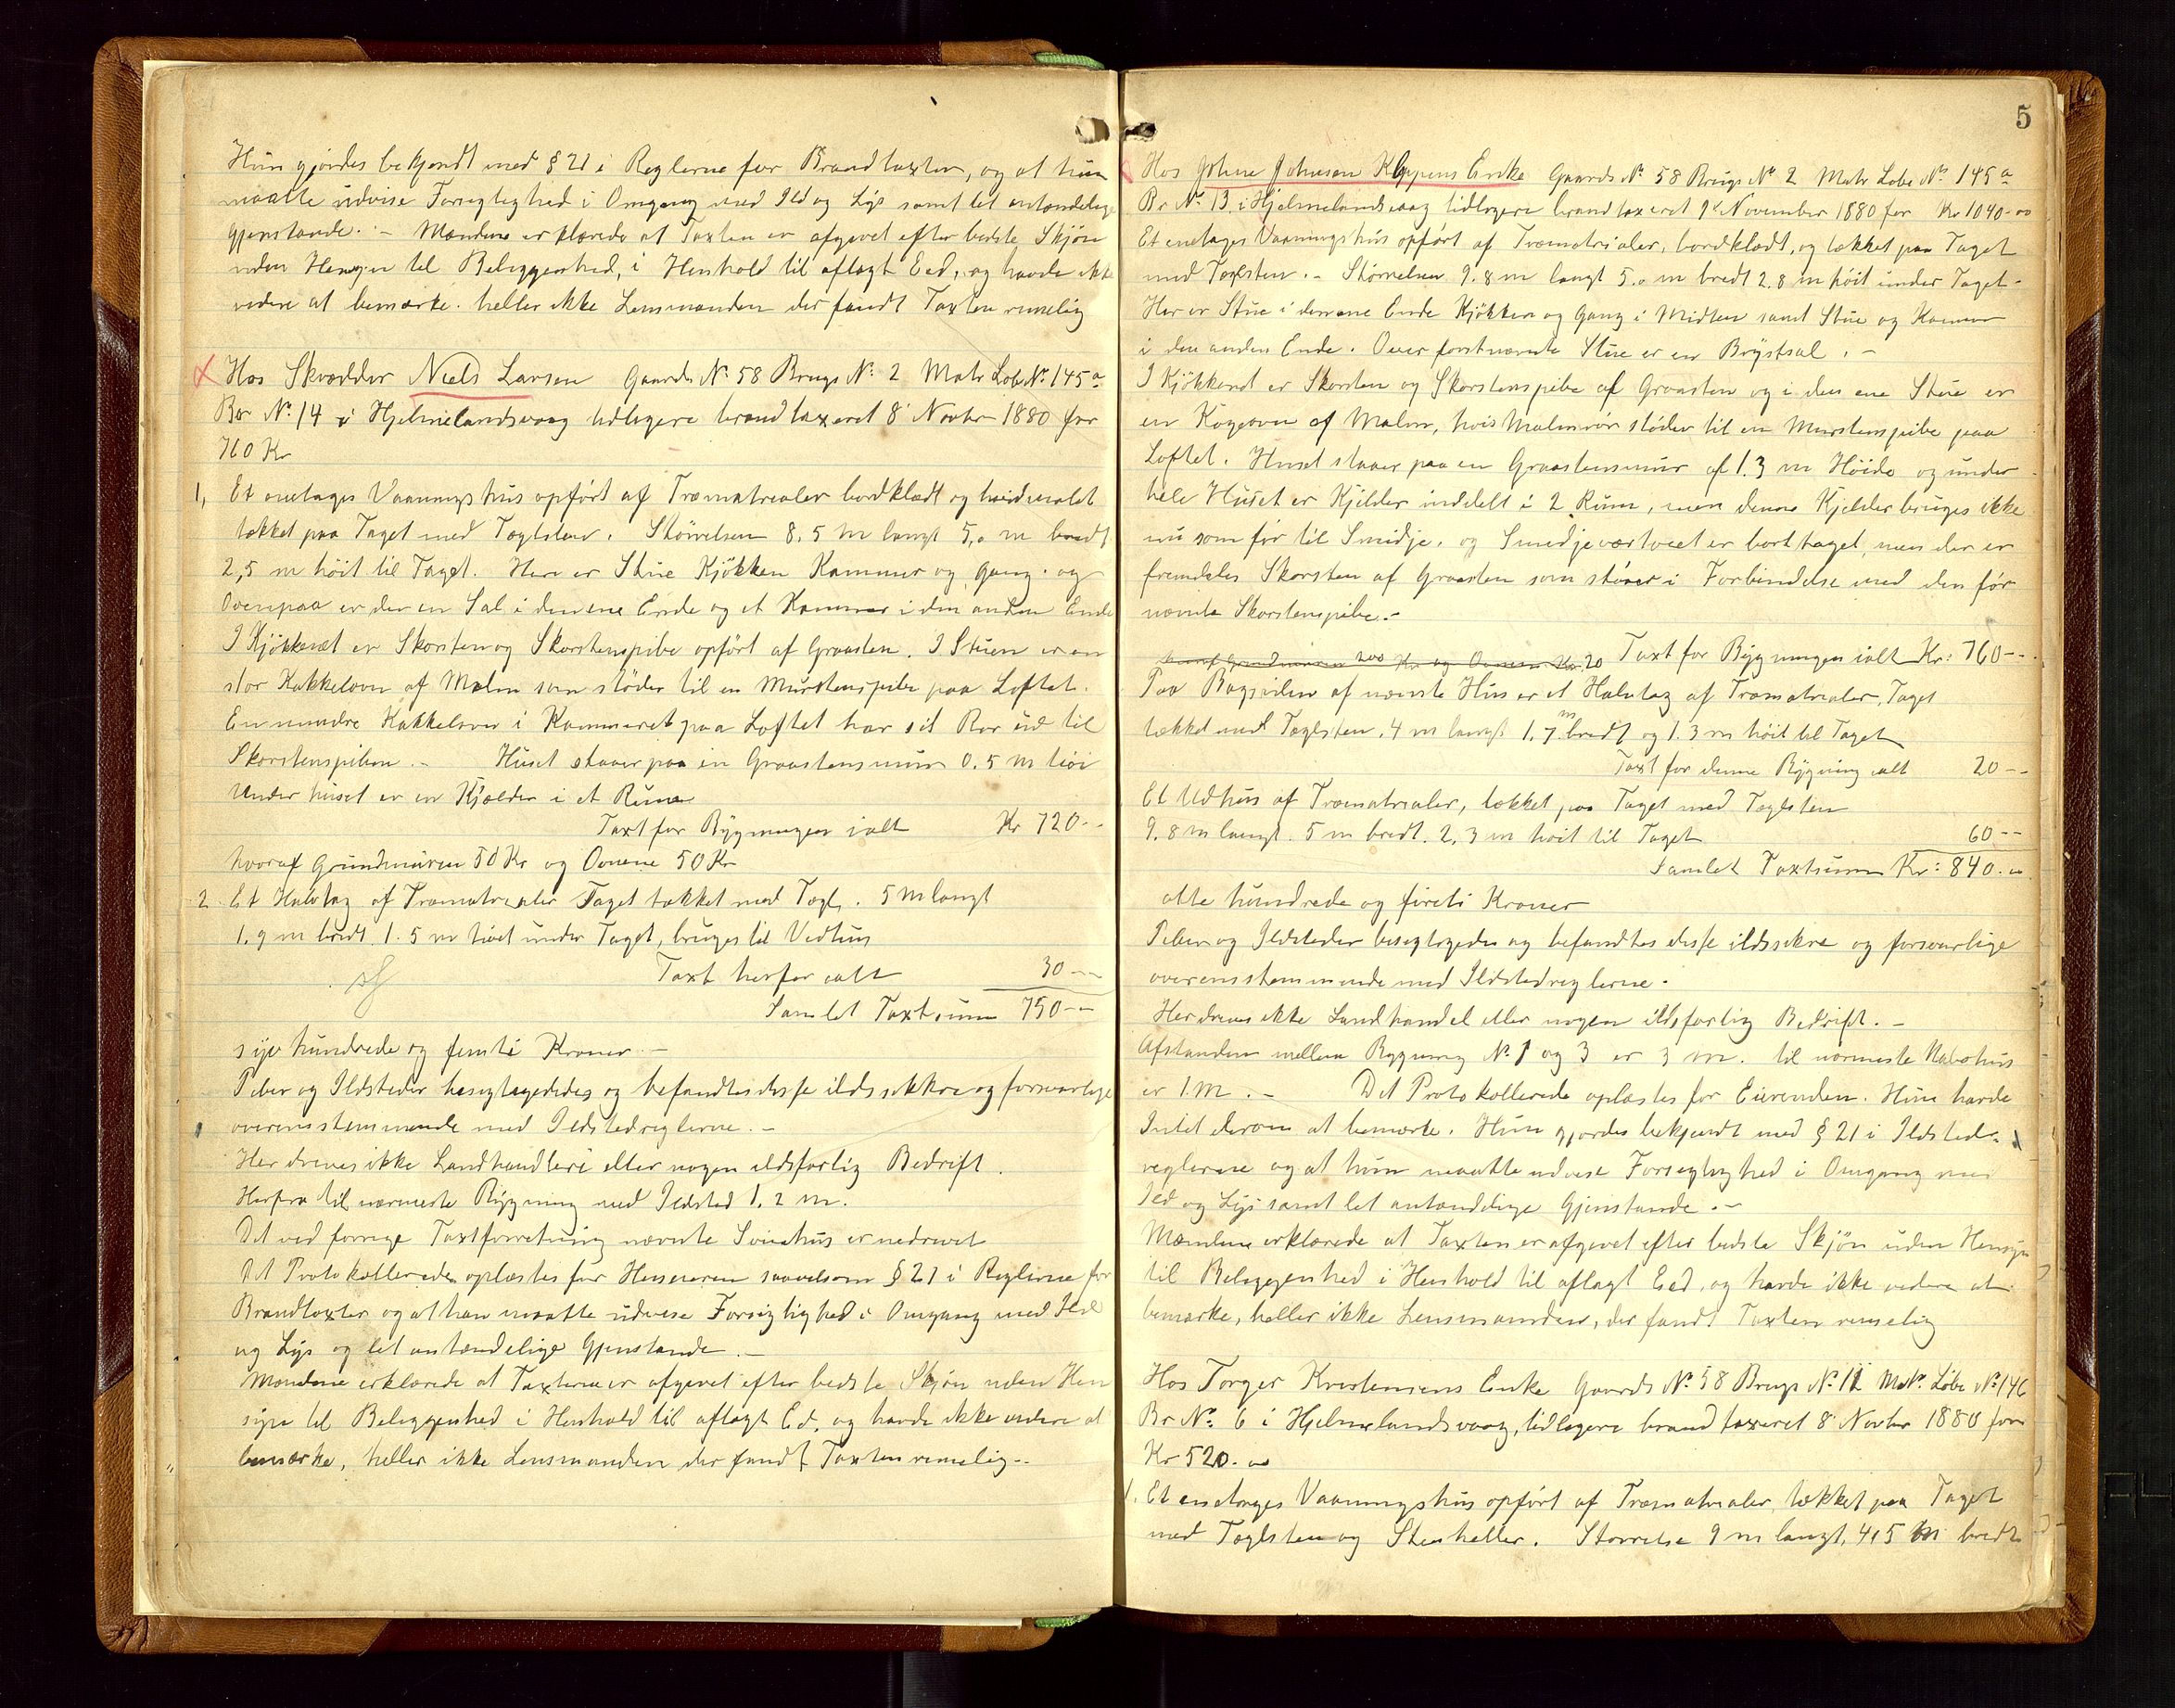 Hun gjördes bekjendt med § 21 i Reglerne for Brandtaxten, og at hun
maatte udvise Forsigtighed i Omgang med Ild og Lys samt let antændelige
Gjenstande. - Mændene erklærede at Taxten er afgivet efter bedste Skjön
uden Hensyn til Beliggenhed, i Henhold til aflagt Eed, og havde ikke
videre at bemærke. heller ikke Lensmanden der fandt Taxten rimelig
Hos Skrædder Niels Larsen Gaards No 58 Brugs No: 2 Matr Löbe No: 145a
Br No 14 i Hjelmelandsvaag tidligere brandtaxeret 8 Novbr 1880 for
760 Kr
1, Et enetages Vaaningshus opfört af Træmatrialer bordklædt og hvidmalet
tækket paa Taget med Taglsten. Störrelsen 8,5 m langt 5,0 m bredt
2,5 m höit til Taget. Her er Stue Kjökken Kammer og Gang. og
Ovenpaa er der en Sal i den ene Ende og et Kammer i den anden Ende
I Kjökkenet er Skorsten og Skorstenspibe opfört af Graasten. I Stuen er en
stor Kakkelovn af Malm som stöder til en Murstenspibe paa Loftet.
En mindre Kakkelovn i Kammeret paa Loftet har sit Rör ud til
Skorstenspiben. - Huset staaer paa en Graastensmur 0.5 m höi
Under huset er en Kjælder i et Rum
Taxt for Bygningen ialt Kr 720--
hvoraf Grundmuren 50 Kr og Ovnene 50 Kr
2 Et Halvtag af Træmatrialer Taget tækket med Tagl. 5 m langt
1.9 m bredt 1.5 m höit under Taget, bruges til Vedhus
Taxt herfor ialt 30--
Samlet Taxtsum 750--
syv hundrede og femti Kroner -
Piber og Ildsteder besigtigedes og befandtes disse ildssikkre og forsvarlige
overensstemmende med Ildstedreglerne. -
Her drives ikke Landhandleri eller nogen ildsfarlig Bedrift.
Herfra til nærmeste Bygning med Ildsted 1.2 m.
Det ved forrige Taxtforretning nævnte Svinehus er nedrevet
Det Protokollerede oplæstes for Huseieren saavelsom § 21 i Reglerne for
Brandtaxter og at han maatte udvise Forsigtighed i Omgang med Ild
og Lys og let antændelige Gjenstande. -
Mændene erklærede at Taxterne er afgivet efter bedste Skjön uden Hen
syn til Beliggenhed i Henhold til aflagt Ed. og havde ikke videre at
bemærke, heller ikke Lensmanden der fandt Taxten rimelig. -
5
Hos Johne Johnsen Kleppens Enke Gaards No 58 Brugs No 2 Matr Löbe No 145a
Br No 13 i Hjelmelandsvaag tidligere brandtaxeret 9 November 1880 for Kr 1040-00
Et enetages Vaaningshus opfört af Træmatrialer, bordklædt, og tækket paa Taget
med Taglsten. - Störrelsen 9.8 m langt 5.0 m bredt 2.8 m höit under Taget -
Her er Stue i den ene Ende Kjökken og Gang i Midten samt Stue og Kammer
i den anden Ende. Over forstnævnte Stue er en Brystsal. -
I Kjökkenet er Skorsten og Skorstenspibe af Graasten og i den ene Stue er
en Kogeovn af Malm, hvis Malmrör stöder til en Murstenspibe paa
Loftet. Huset staaer paa en Graastensmur af 1.3 m Höide og under
hele Huset er Kjelder inddelt i 2 Rum, men denne Kjelder bruges ikke
nu som för til Smidje. og Smedjeværtöiet er borttaget, men der er
fremdeles Skorsten af Graasten som staaer i Forbindelse med den för
nævnte Skorstenspibe. -
hvoraf Grundmuren 200 Kr og Ovnene Kr 20 Taxt for Bygningen ialt Kr: 760--
Paa Bagsiden af nævnte Hus er et Halvtag af Træmatrialer, Taget
tækket med Taglsten. 4 m langt 1.7 m bredt og 1.3 m höit til Taget
Taxt for denne Bygning ialt 20--
Et Udhus af Træmatrialer, tækket paa Taget med Taglsten
9.8 m langt. 5 m bredt. 2,3 m höit til Taget 60--
Samlet Taxtsum Kr: 840.00
otte hundrede og fireti Kroner
Piber og Ildsteder besigtigedes og befandtes disse ildssikre og forsvarlige
overensstemmende med Ildstedreglerne.
Her drives ikke Landhandel eller nogen ildsfarlig Bedrift. -
Afstanden mellem Bygning No 1 og 3 er 3 m. til nærmeste Nabohus
er 1 m. - Det Protokollerede oplæstes for Eierinden. Hun havde
Intet derom at bemærke. Hun gjordes bekjendt med § 21 i Ildsted-
reglerne og at hun maatte udvise Forsigtighed i Omgang med
Ild og Lys samt let antændelige Gjenstande. -
Mændene erklærede at Taxten er afgivet efter bedste Skjön uden Hensyn
til Beliggenhed i Henhold til aflagt Eed, og havde ikke videre at
bemærke, heller ikke Lensmanden, der fandt Taxten rimelig
Hos Torger Kristensens Enke Gaards No 58 Brugs No 11 Matr. Löbe No 146
Br No 6 i Hjelmelandsvaag, tidligere brandtaxeret 8 Novbr 1880 for
Kr 520.00
1. Et enetages Vaaningshus opfört af Træmatrialer, tækket paa Taget
med Taglsten og Stenheller. Störrelse 9 m langt, 4,5 m bredt